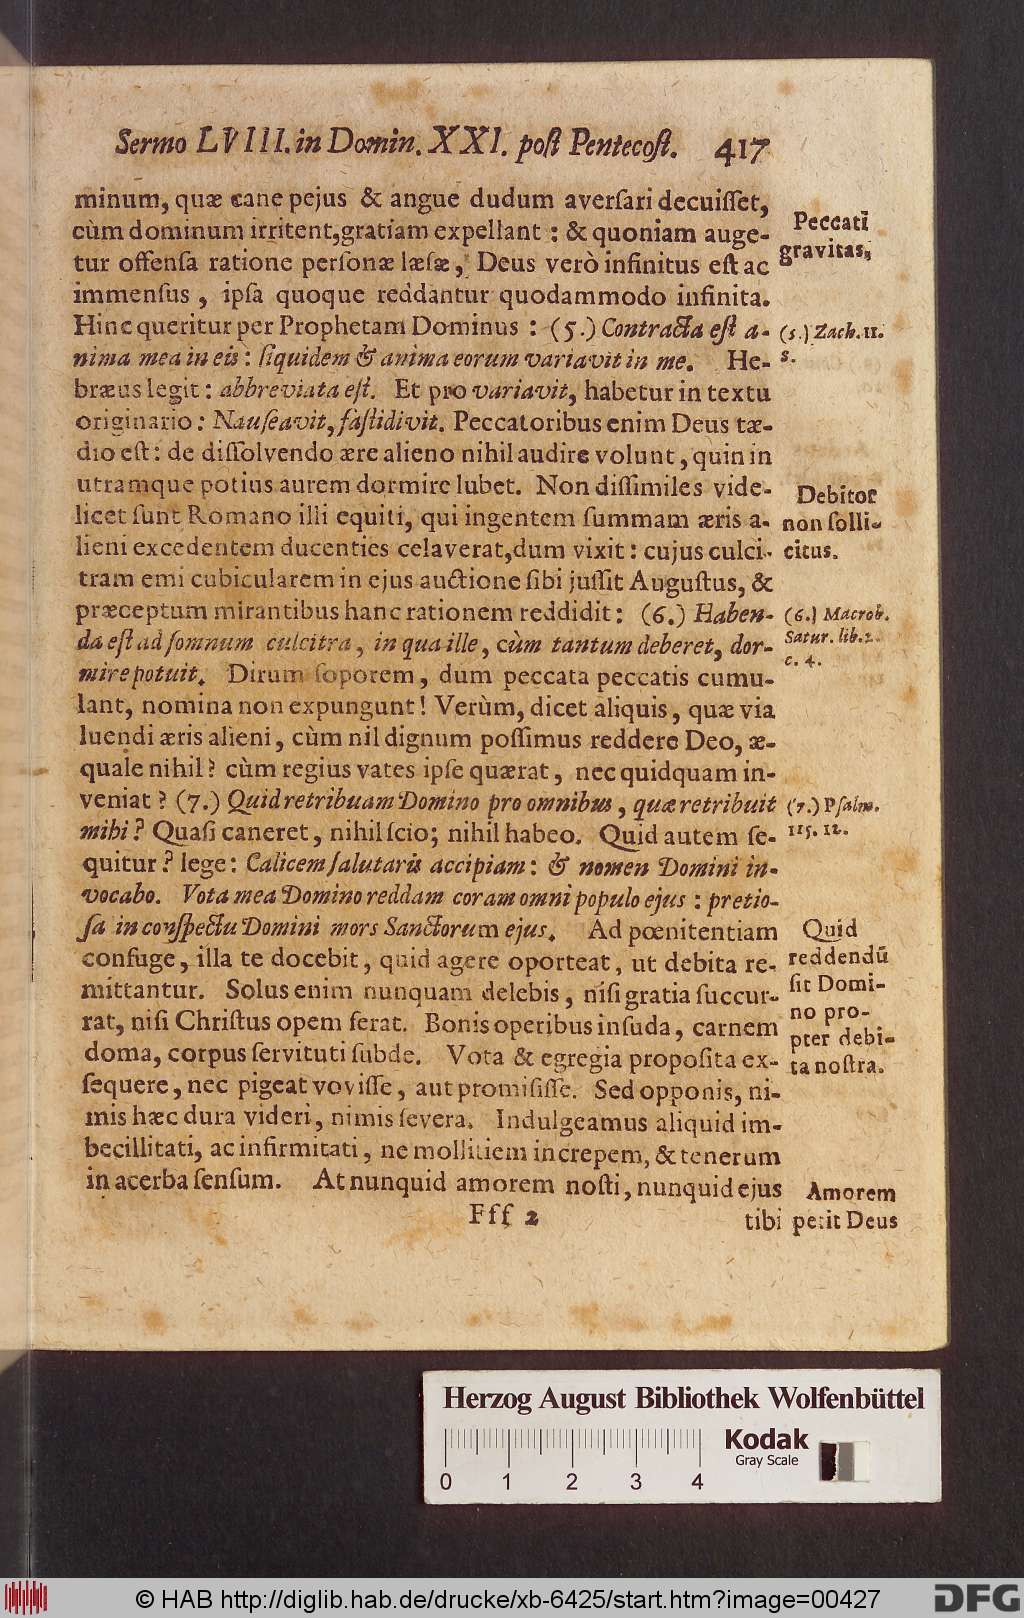 Sermo LVIII. in Domin. XXI. poſt Pentecoſt. 417
minum, quæ cane pejus & angue dudum averſari decuiſſet,
cùm dominum irritent, gratiam expellant : & quoniam auge-
tur offenſa ratione perſonæ læſæ, Deus verò infinitus eſt ac
immenſus, ipſa quoque reddantur quodammodo infinita.
Hinc queritur per Prophetam Dominus : (5.) Contracta eſt a-
nima mea in eis : ſiquidem & anima eorum variavit in me. He-
bræus legit : abbreviata eſt. Et pro variavit, habetur in textu
originario : Nauſeavit, faſtidivit. Peccatoribus enim Deus tæ-
dio eſt : de diſſolvendo ære alieno nihil audire volunt, quin in
utramque potius aurem dormire lubet. Non diſſimiles vide-
licet ſunt Romano illi equiti, qui ingentem ſummam æris a-
lieni excedentem ducenties celaverat, dum vixit : cujus culci-
tram emi cubicularem in ejus auctione ſibi juſſit Auguſtus, &
præceptum mirantibus hanc rationem reddidit : (6.) Haben-
da eſt ad ſomnum culcitra, in qua ille, cùm tantum deberet, dor-
mire potuit. Dirum ſoporem, dum peccata peccatis cumu-
lant, nomina non expungunt! Verùm, dicet aliquis, quæ via
luendi æris alieni, cùm nil dignum poſſimus reddere Deo, æ-
quale nihil? cùm regius vates ipſe quærat, nec quidquam in-
veniat? (7.) Quid retribuam Domino pro omnibus, quæ retribuit
mihi? Quaſi caneret, nihil ſcio; nihil habeo. Quid autem ſe-
quitur? lege : Calicem ſalutaris accipiam : & nomen Domini in-
vocabo. Vota mea Domino reddam coram omni populo ejus : pretio-
ſa in conſpectu Domini mors Sanctorum ejus. Ad pœnitentiam
confuge, illa te docebit, quid agere oporteat, ut debita re-
mittantur. Solus enim nunquam delebis, niſi gratia ſuccur-
rat, niſi Chriſtus opem ferat. Bonis operibus inſuda, carnem
doma, corpus ſervituti ſubde. Vota & egregia propoſita ex-
ſequere, nec pigeat voviſſe, aut promiſiſſe. Sed opponis, ni-
mis hæc dura videri, nimis ſevera. Indulgeamus aliquid im-
becillitati, ac infirmitati, ne mollitiem increpem, & tenerum
in acerba ſenſum. At nunquid amorem noſti, nunquid ejus
Fff 2
tibi
Peccati
gravitas.
(5.) Zach. 11.
8.
Debitor
non ſolli-
citus.
(6.) Macrob.
Satur. lib. 2.
c. 4.
(7.) Pſalm.
115. 12.
Quid
reddendũ
ſit Domi-
no pro-
pter debi-
ta noſtra.
Amorem
petit Deus
Herzog August Bibliothek Wolfenbüttel
0 1 2 3 4
Kodak
Gray Scale
© HAB http://diglib.hab.de/drucke/xb-6425/start.htm?image=00427
DFG